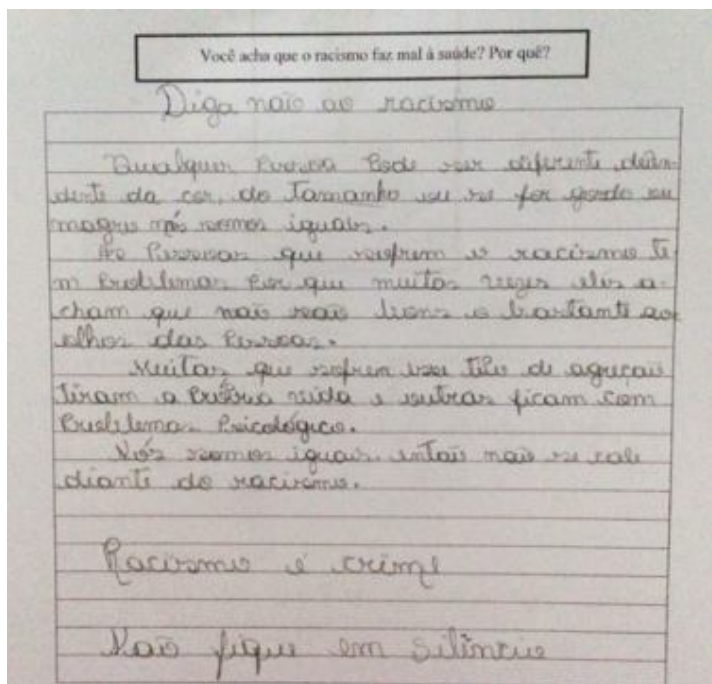 Você acha que o racismo faz mal à saúde? Por quê?
Diga não ao racismo
Qualquer Pessoa Pode ser diferente
dente da cor, do Tamanho ou se for gordo ou
magro nós somos iguais.
As Pessoas que sofrem o racismo te
m Problemas Por que muitas vezes eles a-
cham que não são bons o bastante aos
olhos das Pessoas.
Muitas que sofrem esse Tipo de agreção
Tiram a Própria vida e outras ficam com
Problemas Psicológico.
Nós somos iguais. então não se cale
diante do racismo.
Racismo é crime
Não fique em silêncio